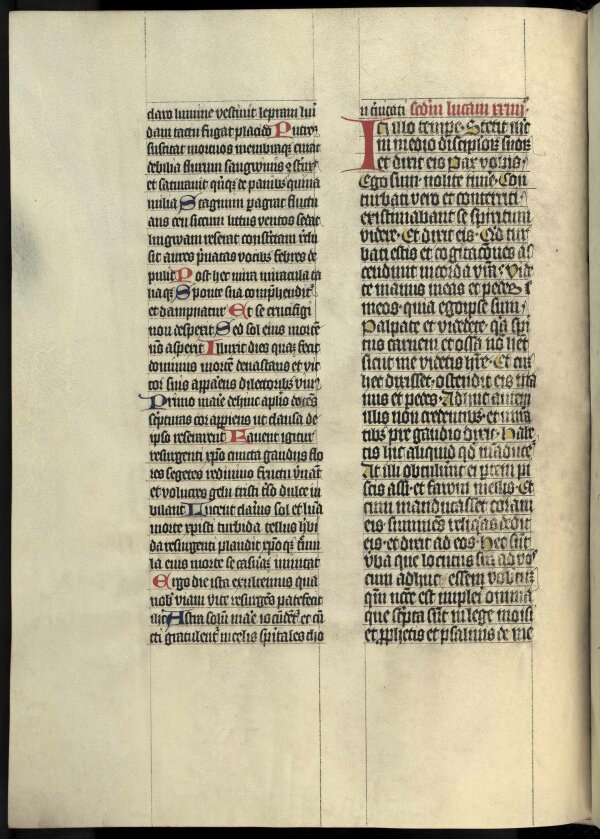 claro lumine vestivit lepram lui
dam tactu fugat placido Putres
suscitat mortuos membraque curat
debilia fluxum sanguinis ɔstrīx̄
et saturavit qͥnq; de panibus quina
milia Stagnum pagrat fluctu
ans ceu siccum litus ventos sedat
lingwam reserat constrictam reclu
sit aures privatas vocibus febres de
pulit Post hec mira miracula ta
liaq; Sponte sua comprehenditᷣ
et dampnatur Et se crucifigi
non despexit Sed sol eius mortē
nō aspexit Illuxit dies quā fecit
dominus mortē devastans et vic
tor suis apparens dilectoribus vivꝰ
Primo marie dehinc aplis docēs
scripturas cor aperiens ut clausa de
ipso reserarent Favent igitur
resurgenti xp̄o cuncta gaudijs flo
res segetes redivivo fructu vernāt
et volucres gelu tristi t̄so dulce iu
bilant Lucent clarius sol et luna
morte xpisti turbida tellus herbi
da resurgenti plaudit xp̄o q; trem̄
la eius morte se casuraꝫ minitat
Ergo die ista exultemus qua
nob̄ viam vite resurgēs patefecit
ih̄c Astra solum mare iocūdetᷣ et cū
cti gratulentᷣ in celis spiritales cho
ri trinitati scdm lucam xxiiij
In illo tempe Stetit ih̄c
in medio discipl̄oꝝ suoꝝ
et dixit eis Pax vobis
Ego sum nolite time Con
turbati vero et conterriti
existimabant se spiritum
videre Et dixit eis Qd tur
bati estis et cogitacōnes as
cendunt in corda vrā Vide
te manus meas et pedes
meos quia ego ipse sum
Palpate et videte qꝛ spi
tus carnem et ossa nō het
sicut me videtis hre Et cu
hec dixisset ostendit eis ma
nus et pedes Adhuc autem
illis non credentibꝰ et miran
tibꝰ pre gaudio dixit Habe
tis hic aliquid qd manduce
At illi obtulerunt ei ptem pi
scis assi et favum mellis Et
cum manducasset coram
eis sumens reliqas dedit
eis et dixit ad eos Hec sūt
vba que locutus sū ad vos
cum adhuc essem vobiscū
qm̄ necꝫ est impleri omnia
que scripta sūt in lege moisi
et pphetis et psalmis de me